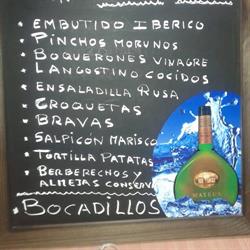 • EMBUTIDO IBERICO
• PINCHOS MORUNOS
• BOQUERONES VINAGRE
• LANGOSTINO COCIDOS
• ENSALADILLA RUSA
• CROQUETAS
• BRAVAS
• SALPICÓN MARISCO
• TORTILLA PATATAS
• BERBERECHOS Y
ALMEJAS CONSERVA
MATEUS
BOCADILLOS